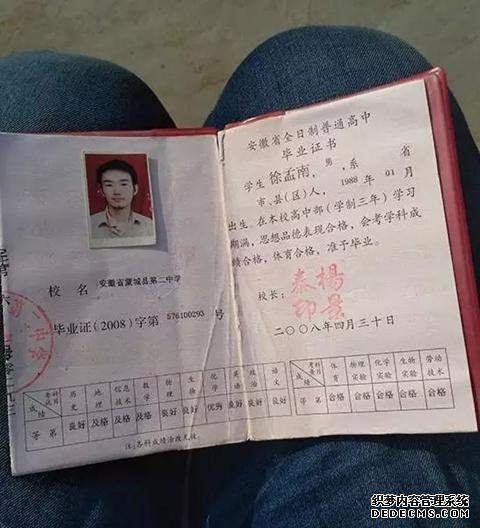 校 名 安徽省蒙城县第二中学
毕业证(2008)字第 576100293 号
科目
考试
成绩
历史
地理
信息技术
数学
物理
生物
化学
英语
政治
语文
等 第
良好
及格
及格
及格
良好
良好
优秀
良好
良好
良好
注:各科成绩涂改无效。
安徽省全日制普通高中
毕业证书
学生 徐孟南,男,系 省
市、县(区)人, 1988 年 01 月
出生。在本校高中部(学制三年)学习
期满,思想品德表现合格,会考学科成
绩合格,体育合格,准予毕业。
校长:
楊景
泰印
二〇〇八年四月三十日
科目
考查
成绩
体育
物理实验
化学实验
生物实验
劳动技术
等 第
合格
合格
合格
合格
合格
织梦内容管理系统
DEDECMS.COM